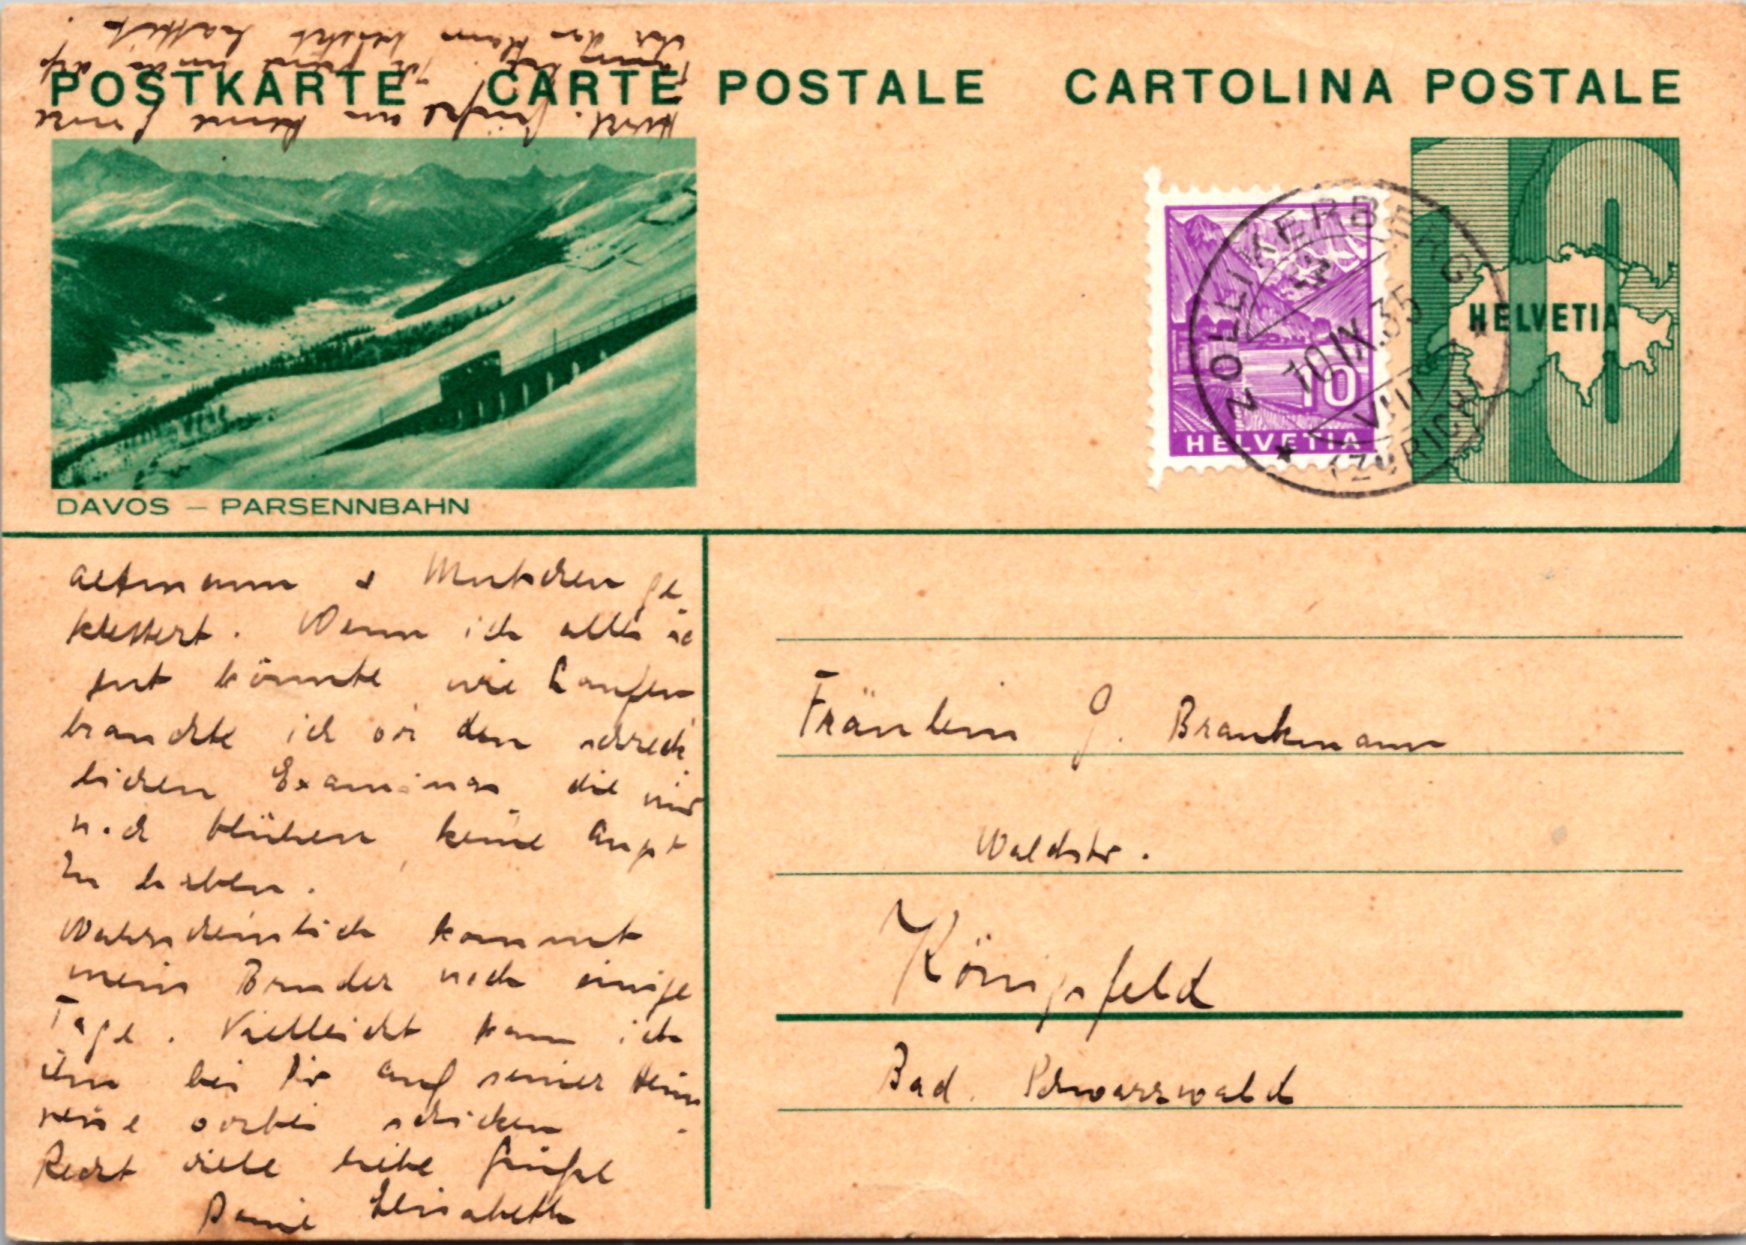 POSTKARTE CARTE POSTALE CARTOLINA POSTALE
Herzl. Grüße an
DAVOS – PARSENNBAHN
ZOLLIKERBERG
10.IX.35
VIII
(ZÜRICH)
10
HELVETIA
HELVETIA
ge
klettert. Wenn ich alles so
gut könnte wie Laufen
brauchte ich vor den schreck
lichen Examinas, die mir
noch blühen, keine Angst
zu haben.
Wahrscheinlich kommt
mein Bruder noch einige
Tage. Vielleicht kann ich
ihn bei Dir auf seiner Heim
reise vorbei schicken.
Recht viele liebe Grüße
Deine Elisabeth
Fräulein G. Brankmann
Waldstr.
Königsfeld
Bad. Schwarzwald